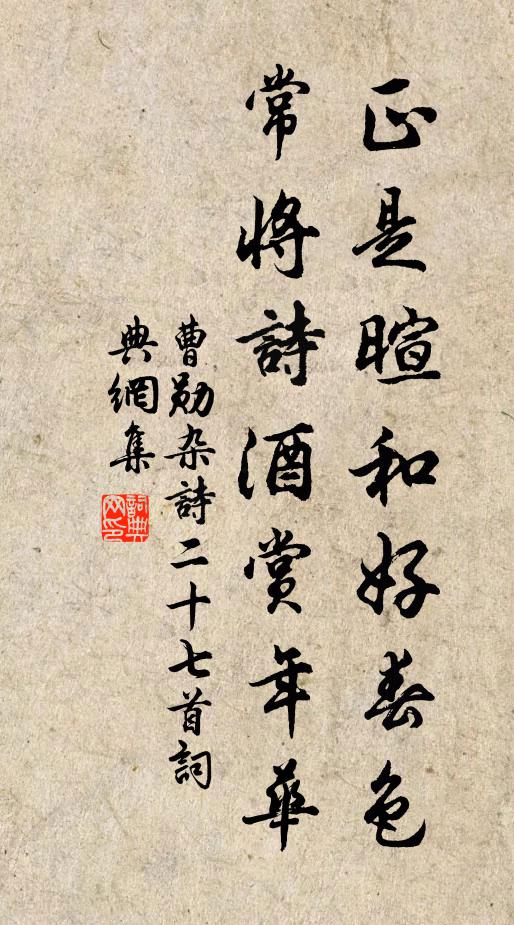 正是暄和好春色
常將詩酒賞年華
曹勛杂詩二十七首詞
典網集
詞典網印